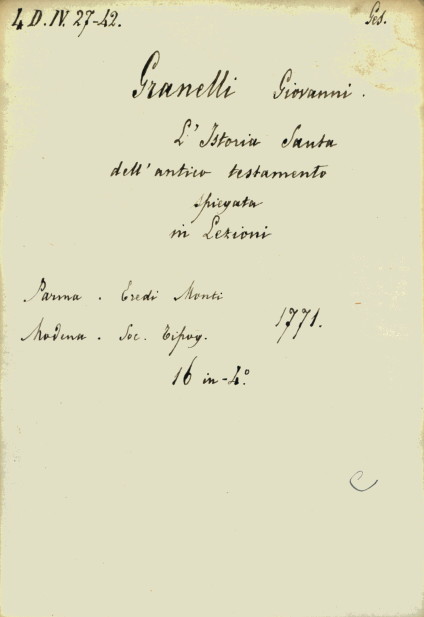 4 D. IV. 27-42. Ges.
Granelli Giovanni.
L'Istoria Santa
dell'antico testamento
spiegata
in Lezioni
Parma. Eredi Monti
Modena. Soc. Tipog. 1771.
16 in-4.º
C